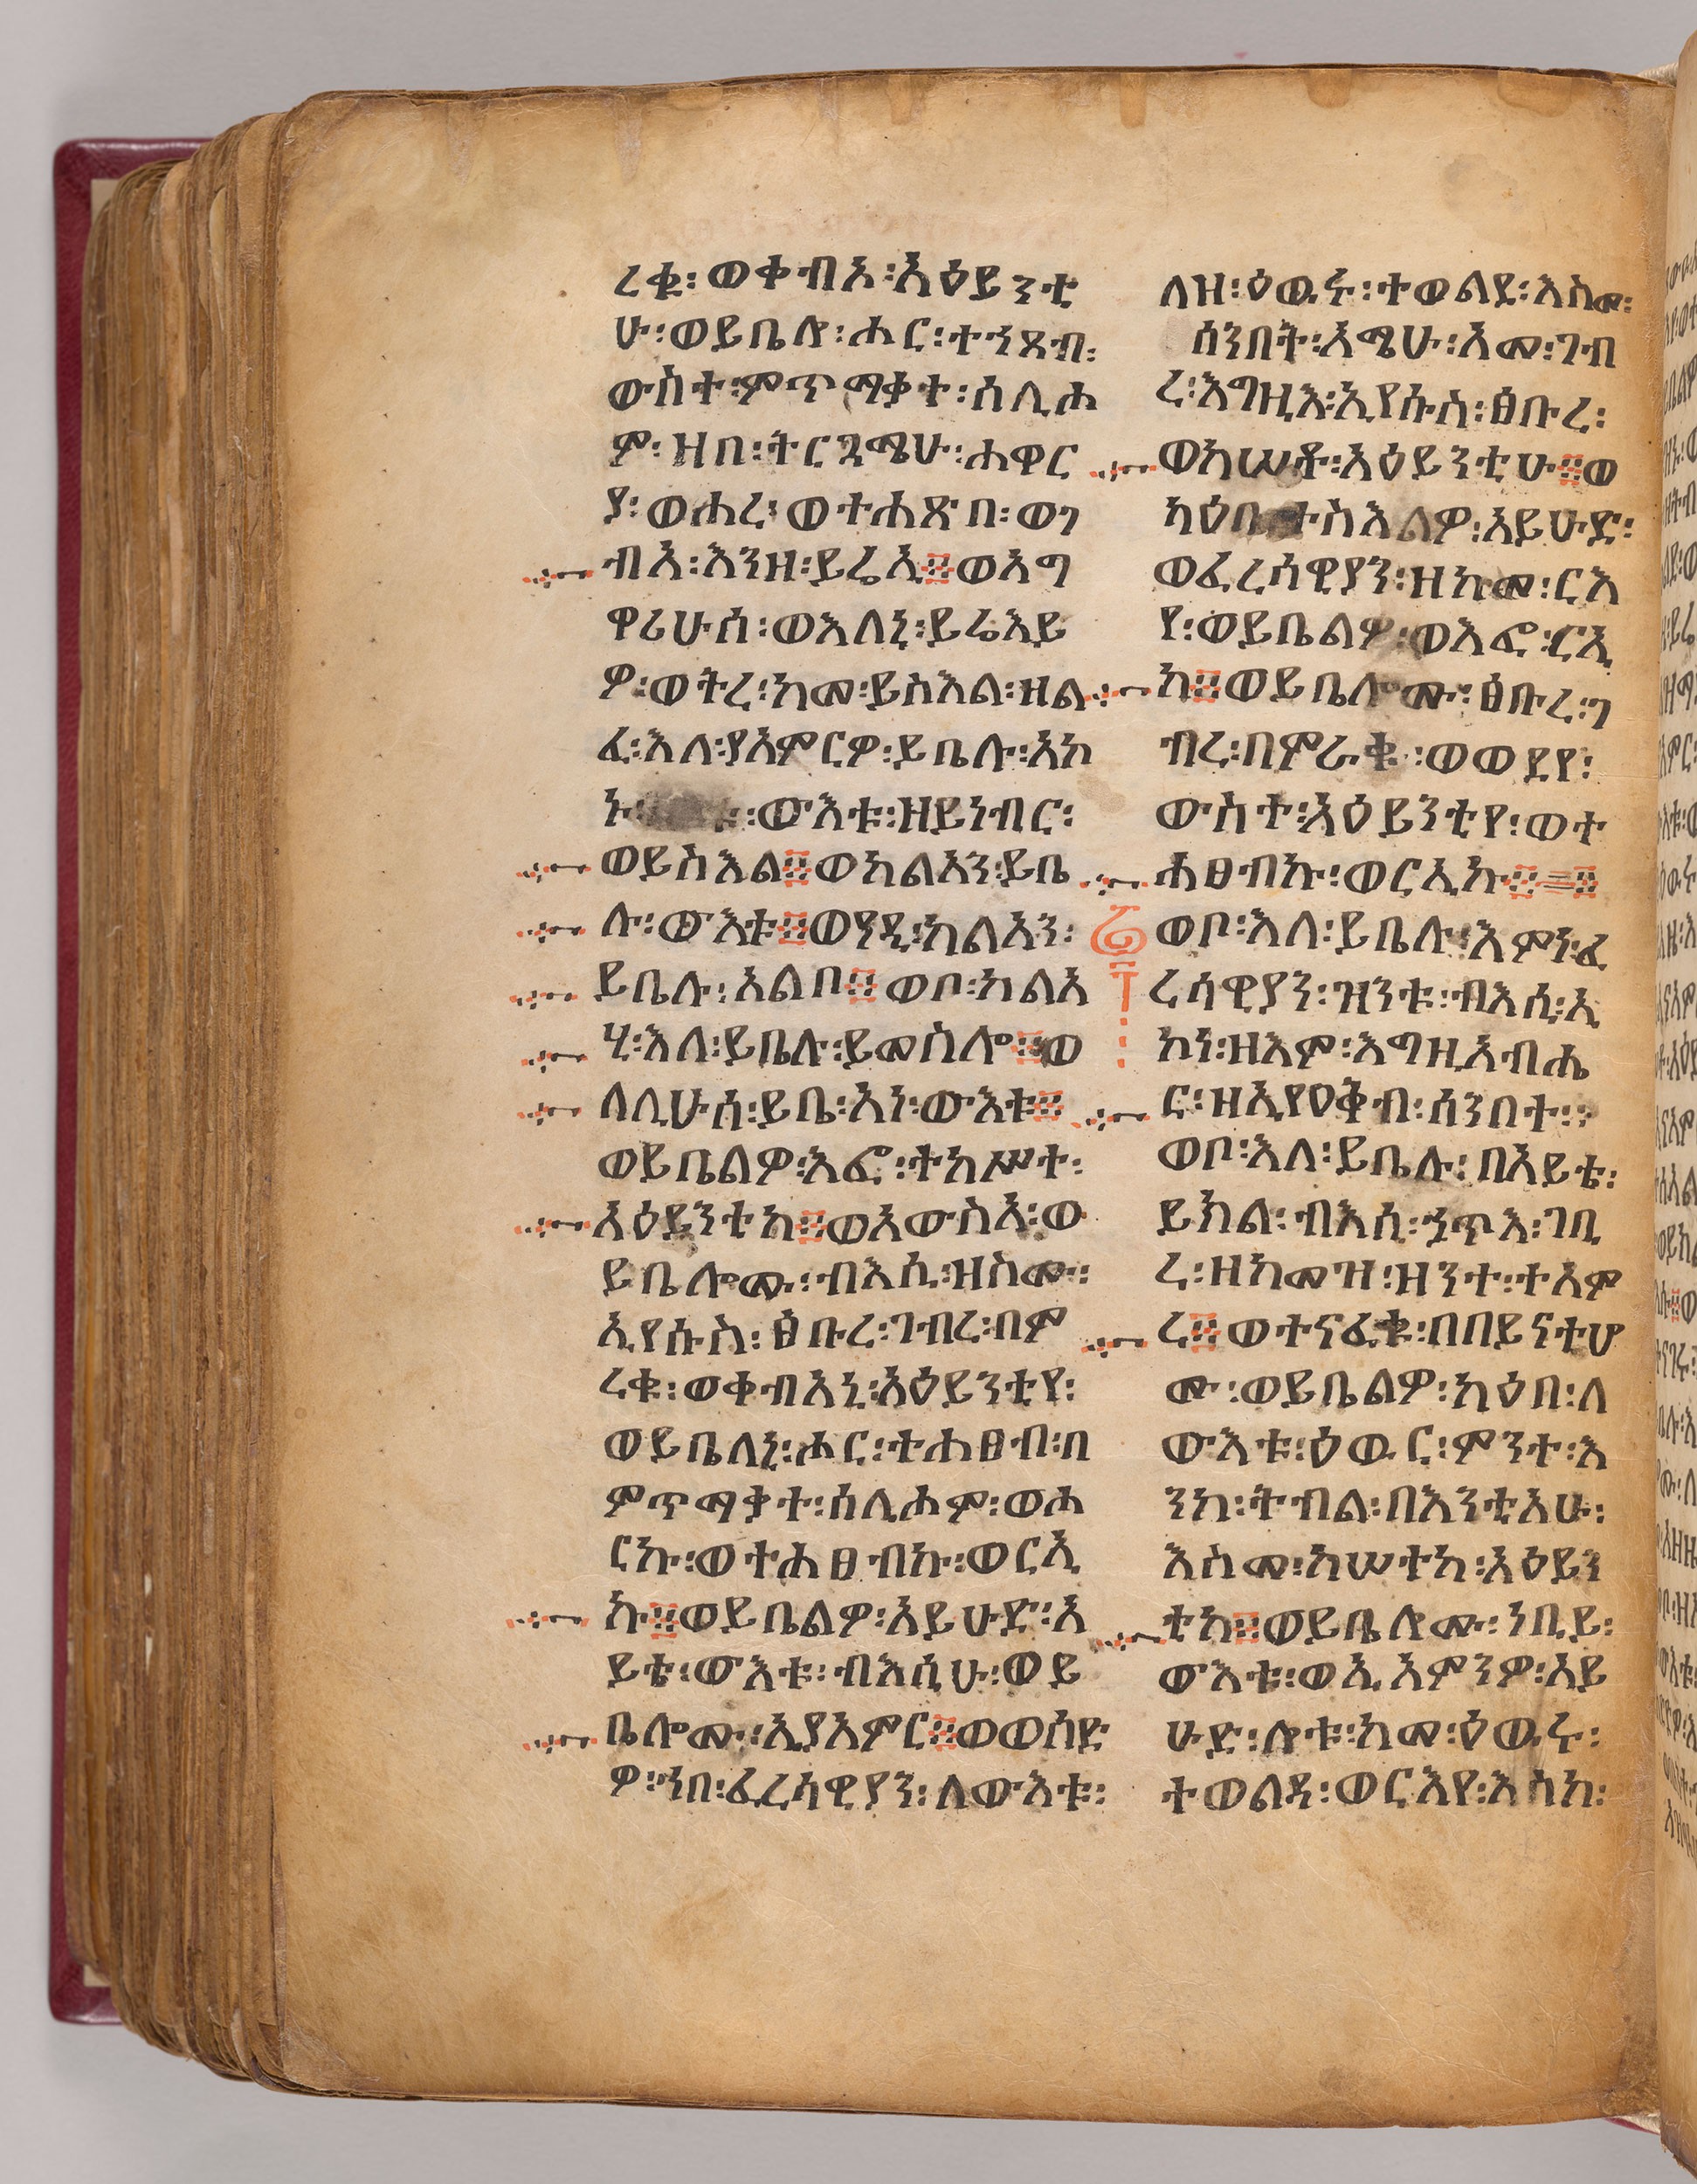 ረቁ፡ወቀብአ፡አዕይንቲ
ሁ፡ወይቤሎ፡ሖር፡ተኀጸብ፡
ውስተ፡ምጥማቃተ፡ሰሊሖ
ም፡ዝበ፡ትርጓሜሁ፡ሐዋር
ያ፡ወሐረ፡ወተሐጽበ፡ወገ
ብአ፡እንዘ፡ይሬኢ፨ወአግ
ዋሪሁሰ፡ወእለኒ፡ይሬእይ
ዎ፡ወትረ፡ከመ፡ይስእል፡ዘል
ፈ፡እለ፡የአምርዎ፡ይቤሉ፡አኮ
ኑ፡ውእቱ፡ዘይነብር፡
ወይስእል፨ወካልአን፡ይቤ
ሉ፡ውእቱ፨ወቦዲ፡ካልአን፡
ይቤሉ፡አልቦ፨ወቦ፡ካልአ
ሂ፡እለ፡ይቤሉ፡ይመስሎ፨ወ
ለሊሁሰ፡ይቤ፡አነ፡ውእቱ፨
ወይቤልዎ፡እፎ፡ተከሥተ፡
አዕይንቲከ፨ወአውስአ፡ወ
ይቤሎሙ፡ብእሲ፡ዘስሙ፡
ኢየሱስ፡ፅቡረ፡ገብረ፡በም
ረቁ፡ወቀብአኒ፡አዕይንቲየ፡
ወይቤለኒ፡ሖር፡ተሐፀብ፡በ
ምጥማቃተ፡ሰሊሖም፡ወሖ
ርኩ፡ወተሐፀብኩ፡ወርኢ
ኩ፨ወይቤልዎ፡አይሁድ፡አ
ይቴ፡ውእቱ፡ብእሲሁ፡ወይ
ቤሎሙ፡ኢያአምር፨ወወሰድ
ዎ፡ኀበ፡ፈረሳዊያን፡ለውእቱ፡
ለዝ፡ዕዉሩ፡ተወልደ፡እስመ፡
ሰንበት፡አሜሁ፡አመ፡ገብ
ረ፡እግዚእ፡ኢየሱስ፡ፅቡረ፡
ወከሠቶ፡አዕይንቲሁ፨ወ
ካዕበ፡ተስእልዎ፡አይሁድ፡
ወፈረሳዊያን፡ዘከመ፡ርእ
የ፡ወይቤልዎ፡ወእፎ፡ርኢ
ከ፨ወይቤሎሙ፡ፅቡረ፡ገ
ብረ፡በምራቁ፡ወወደየ፡
ውስተ፡አዕይንቲየ፡ወተ
ሐፀብኩ፡ወርኢኩ፨፨
ወቦ፡እለ፡ይቤሉ፡እምነ፡ፈ
ረሳዊያን፡ዝንቱ፡ብእሲ፡ኢ
ኮነ፡ዘእም፡እግዚአብሔ
ር፡ዘኢየዐቅብ፡ሰንበተ፡፡
ወቦ፡እለ፡ይቤሉ፡በአይቴ፡
ይክል፡ብእሲ፡ኃጥእ፡ገቢ
ረ፡ዘከመዝ፡ዘንተ፡ተአም
ረ፨ወተናፈቁ፡በበይናቲሆ
ሙ፡ወይቤልዎ፡ካዕበ፡ለ
ውእቱ፡ዕዉር፡ምንተ፡እ
ንከ፡ትብል፡በእንቲአሁ፡
እስመ፡ከሠተከ፡አዕይን
ቲከ፨ወይቤሎሙ፡ነቢይ፡
ውእቱ፡ወኢአምንዎ፡አይ
ሁድ፡ሎቱ፡ከመ፡ዕዉሩ፡
ተወልደ፡ወርእየ፡እስከ፡